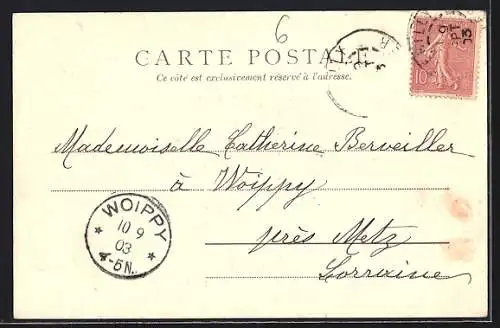 6
CARTE POSTALE
Ce côté est exclusivement réservé à l'adresse.
10
9
SEPT
03
Mademoiselle Catherine Berveiller
à Woippy
près Metz
Lorraine
WOIPPY
10 9
03
* *
4-5N.